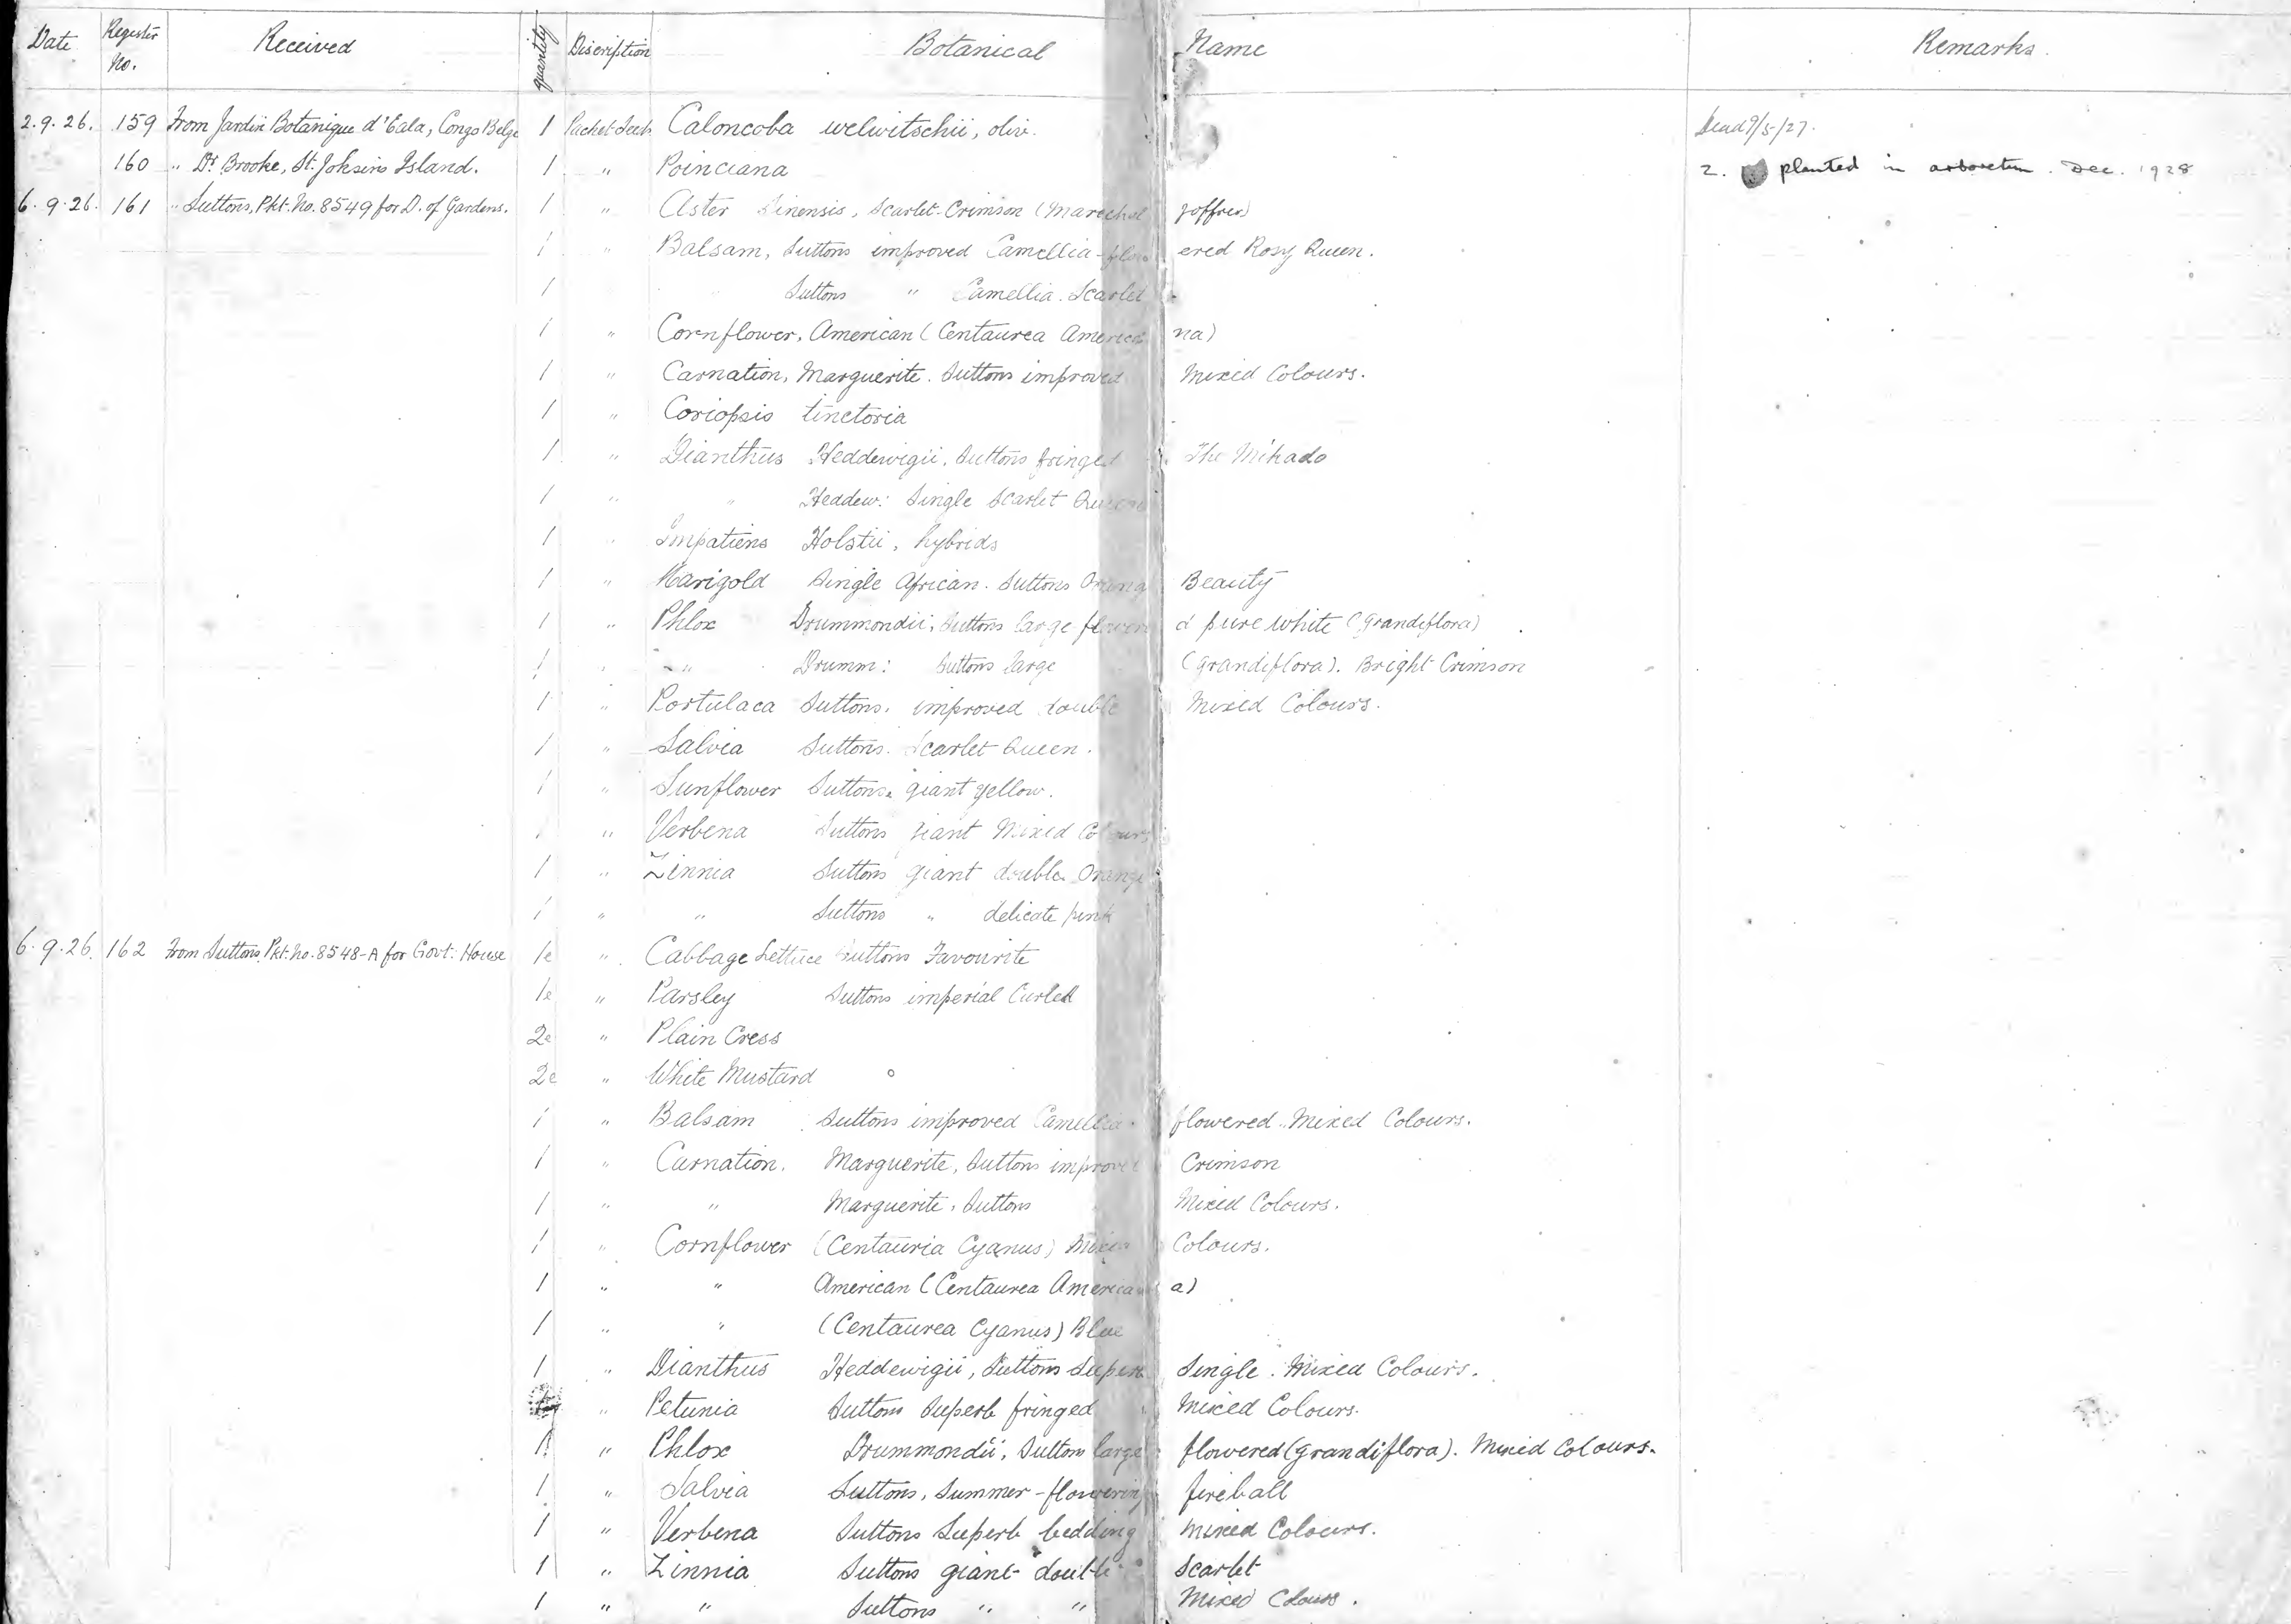 Date Register No. Received quantity Discription Botanical Name Remarks
2.9.26. 159 From Jardin Botanique d'Eala, Congo Belge 1 Packet Seeds Caloncoba welwitschii, oliv. Dead 9/5/27.
160 " Dr Brooke, St. John's Island. 1 " Poinciana 2. planted in arboretum. Dec. 1928
6.9.26. 161 " Suttons, Pkt. No. 8549 for D. of Gardens. 1 " Aster Sinensis, Scarlet-Crimson (Marechal Joffrer)
1 " Balsam, Suttons improved Camellia-flowered Rosy Queen.
1 " Suttons " Camellia. Scarlet
1 " Cornflower, American (Centaurea Americana)
1 " Carnation, Marguerite. Suttons improved Mixed Colours.
1 " Coriopsis tinctoria
1 " Dianthus Heddewigii, Suttons fringed The Mikado
1 " " Heddew: Single Scarlet Queen
1 " Impatiens Holstii, hybrids
1 " Marigold Single African. Suttons Orange Beauty
1 " Phlox Drummondii, Suttons large flowered pure white (grandiflora)
1 " " Drumm: Suttons large (grandiflora). Bright Crimson
1 " Portulaca Suttons. improved double Mixed Colours.
1 " Salvia Suttons. Scarlet Queen.
1 " Sunflower Suttons. giant yellow.
1 " Verbena Suttons giant Mixed Colours
1 " Zinnia Suttons giant double Orange
1 " " Suttons " delicate pink
6.9.26. 162 From Suttons Pkt. No. 8548-A for Govt: House 1e " Cabbage Lettuce Suttons Favourite
1e " Parsley Suttons imperial Curled
2e " Plain Cress
2e " White Mustard
1 " Balsam Suttons improved Camellia-flowered. Mixed Colours.
1 " Carnation. Marguerite, Suttons improved Crimson
1 " " Marguerite, Suttons Mixed Colours.
1 " Cornflower (Centauria Cyanus) Mixed Colours.
1 " " American (Centaurea Americana)
1 " " (Centaurea Cyanus) Blue
1 " Dianthus Heddewigii, Suttons Superb Single. Mixed Colours.
" Petunia Suttons Superb fringed Mixed Colours.
1 " Phlox Drummondii, Suttons large flowered (grandiflora). Mixed Colours.
1 " Salvia Suttons, Summer-flowering fireball
1 " Verbena Suttons Superb bedding mixed Colours.
1 " Zinnia Suttons giant double Scarlet
1 " " Suttons " " Mixed Colours.